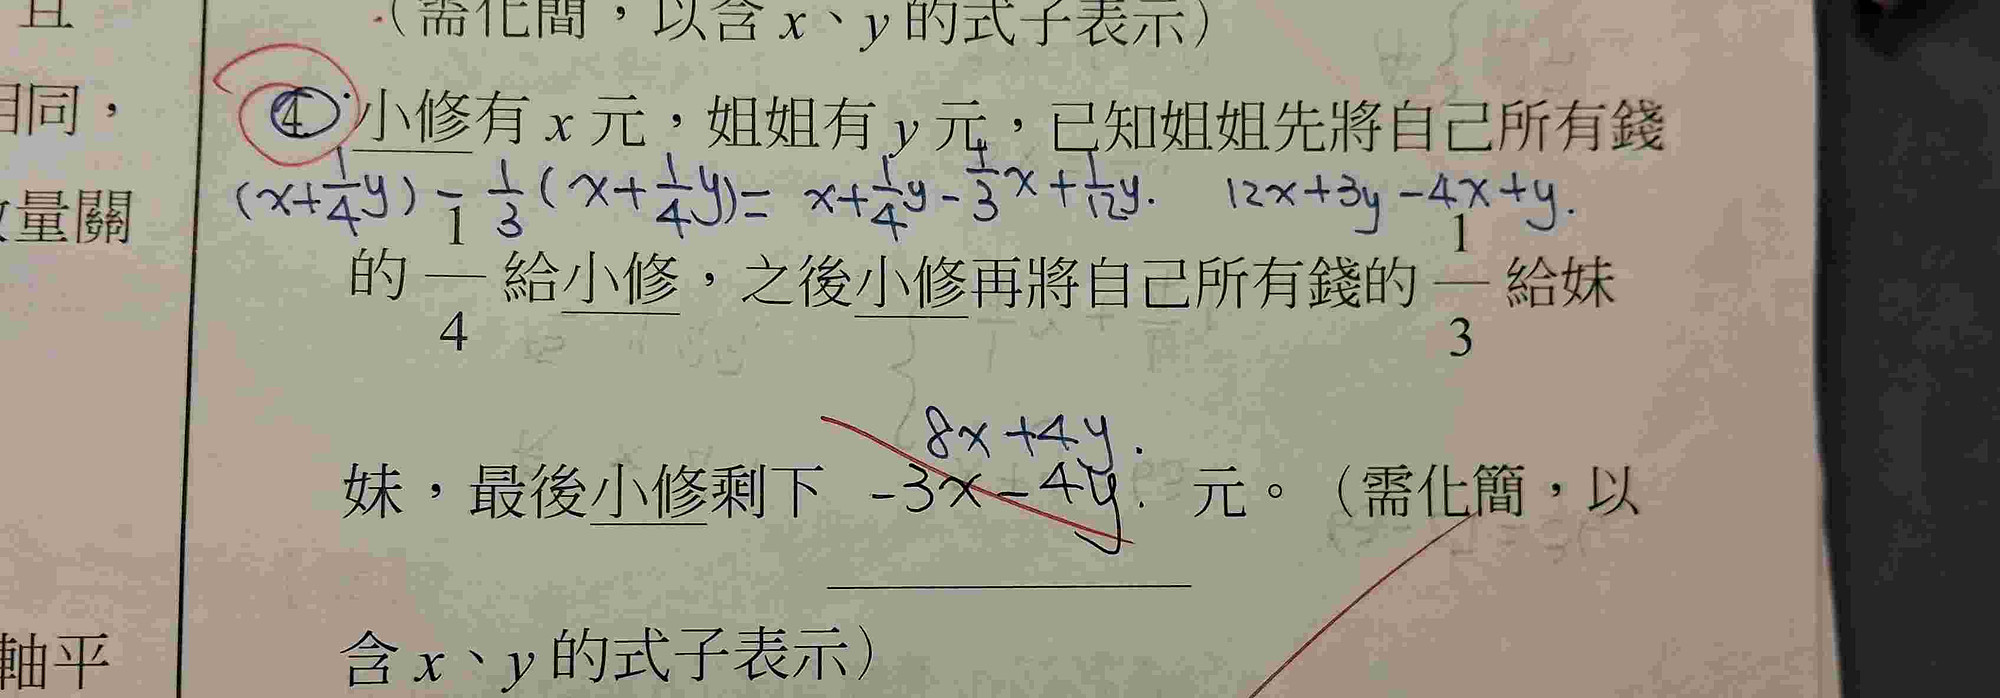 (需化簡，以含 x、y 的式子表示)
相同，
4. 小修有 x 元，姐姐有 y 元，已知姐姐先將自己所有錢
(x+1/4y) - 1/3(x+1/4y)= x+1/4y-1/3x+1/12y. 12x+3y-4x+y.
量關
的 1/4 給小修，之後小修再將自己所有錢的 1/3 給妹
8x+4y.
妹，最後小修剩下 -3x-4y. 元。(需化簡，以
軸平
含 x、y 的式子表示)